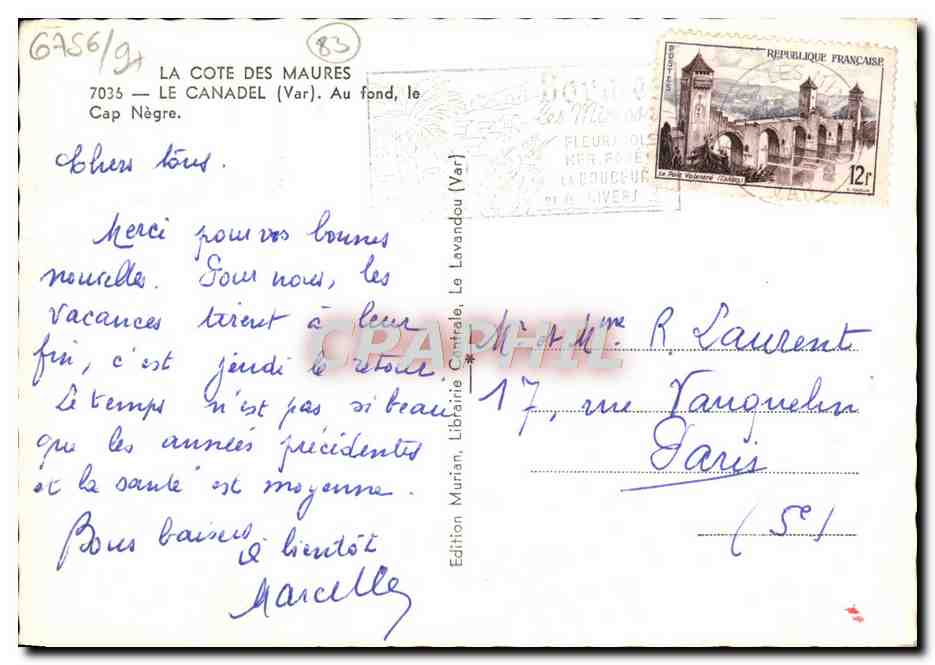 6756/9x
83
LA COTE DES MAURES
7035 — LE CANADEL (Var). Au fond, le
Cap Nègre.
Chers tous.
Merci pour vos bonnes
nouvelles. Pour nous, les
vacances tirent à leur
fin, c'est jeudi le retour.
Le temps n'est pas si beau
que les années précédentes
et la santé est moyenne.
Bons baisers
à bientôt
Marcelle
Edition Murian, Librairie Centrale, Le Lavandou (Var)
Les Mimosas
FLEURS
MER FORET
LA DOUCEUR
HIVERS
VAR
POSTES
REPUBLIQUE FRANÇAISE
Le Pont Valentré (Cahors)
12F
Mr et Mme R. Laurent
17, rue Vauquelin
Paris
(5e)
CPAPHIL